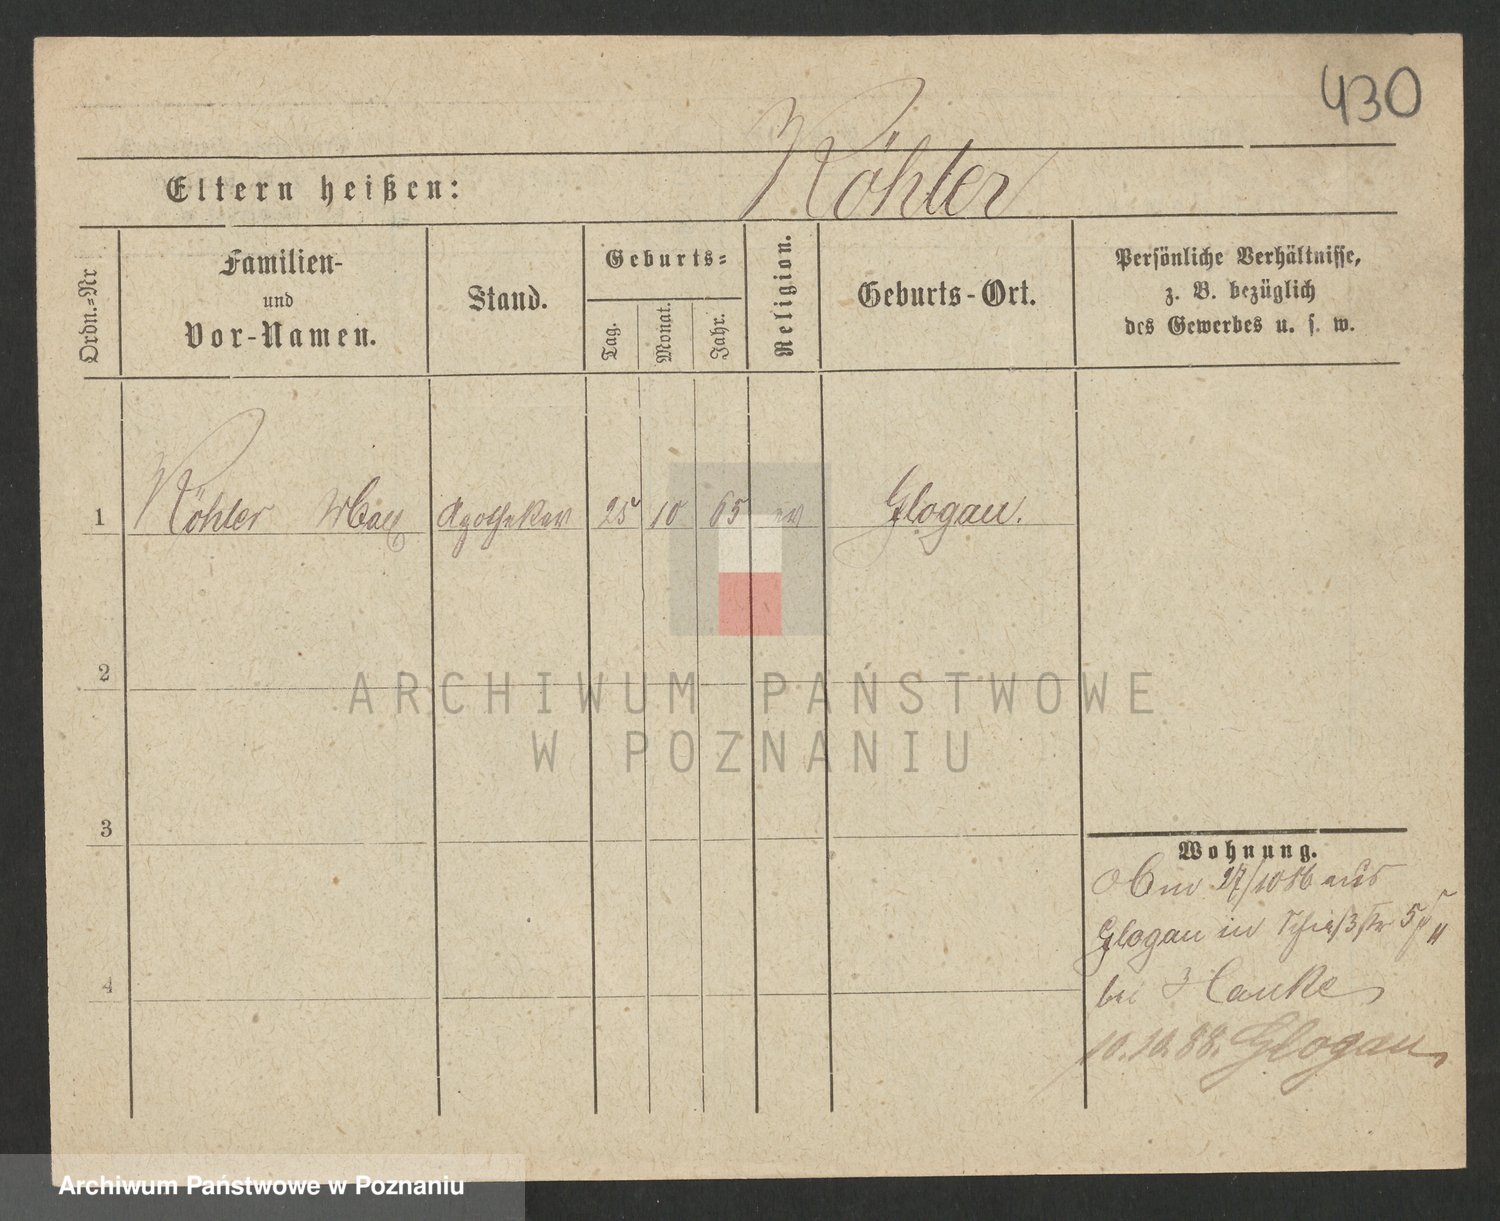 430
Köhler
Eltern heißen:
Ordn.=Nr
Familien-
und
Vor-Namen.
Stand.
Geburts=
Tag.
Monat.
Jahr.
Religion.
Geburts-Ort.
Persönliche Verhältnisse,
z. B. bezüglich
des Gewerbes u. s. w.
1 Köhler Max Apotheker 25 10 65 ev Glogau.
2
3
4
ARCHIWUM PAŃSTWOWE
W POZNANIU
Wohnung.
27/10 86 aus
Glogau in Schießstr 5
bei Hanke
10.10.88. Glogau
Archiwum Państwowe w Poznaniu